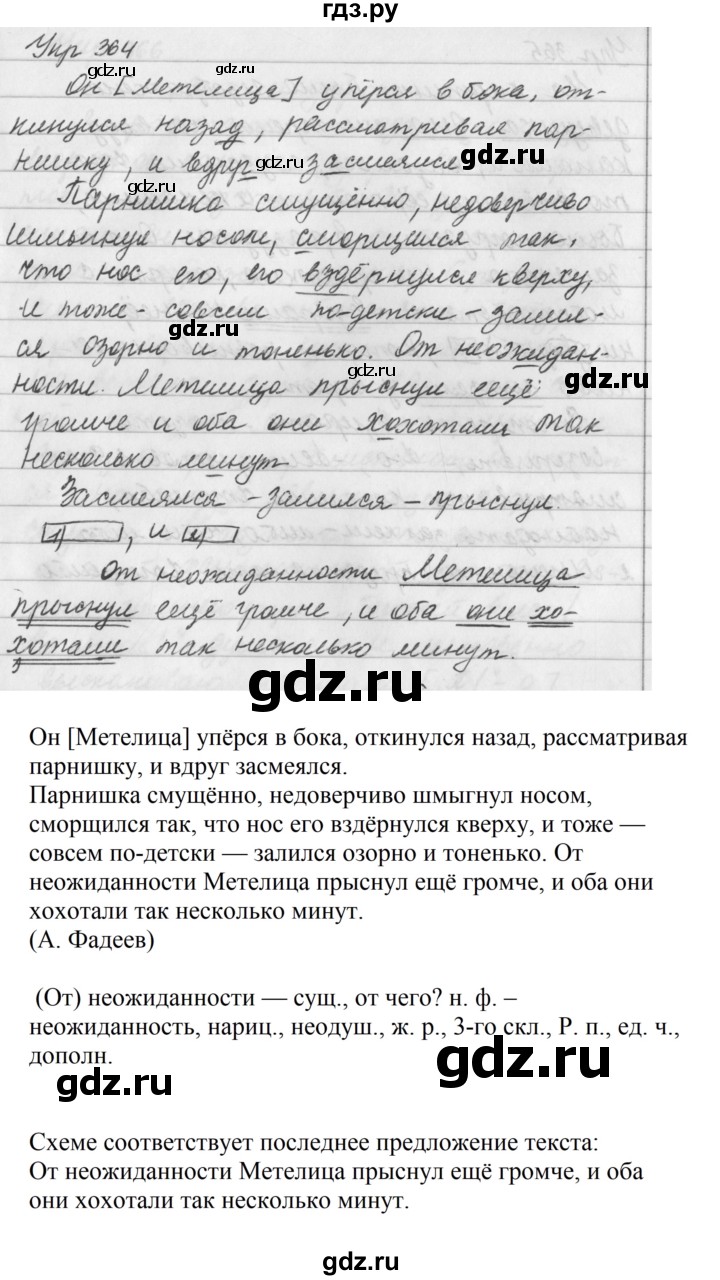 гдз.ру
Упр 364
Он [Метелица] упёрся в бока, от-
кинулся назад, рассматривая пар-
нишку, и вдруг засмеялся
Парнишка смущённо, недоверчиво
шмыгнул носом, сморщился так,
что нос его, его вздёрнулся кверху,
и тоже - совсем по-детски - залил-
ся озорно и тоненько. От неожидан-
ности. Метелица прыснул ещё
громче и оба они хохотали так
несколько минут
Засмеялся - залился - прыснул.
1) , и 2)
От неожиданности Метелица
прыснул ещё громче, и оба они хо-
хотали так несколько минут.
gdz.ru
gdz.ru
gdz.ru
gdz.ru
gdz.ru
gdz.ru
gdz.ru
gdz.ru
gdz.ru
Он [Метелица] упёрся в бока, откинулся назад, рассматривая
парнишку, и вдруг засмеялся.
Парнишка смущённо, недоверчиво шмыгнул носом,
сморщился так, что нос его вздёрнулся кверху, и тоже —
совсем по-детски — залился озорно и тоненько. От
неожиданности Метелица прыснул ещё громче, и оба они
хохотали так несколько минут.
(А. Фадеев)
(От) неожиданности — сущ., от чего? н. ф. –
неожиданность, нариц., неодуш., ж. р., 3-го скл., Р. п., ед. ч.,
дополн.
gdz.ru
gdz.ru
Схеме соответствует последнее предложение текста:
От неожиданности Метелица прыснул ещё громче, и оба
они хохотали так несколько минут.
gdz.ru